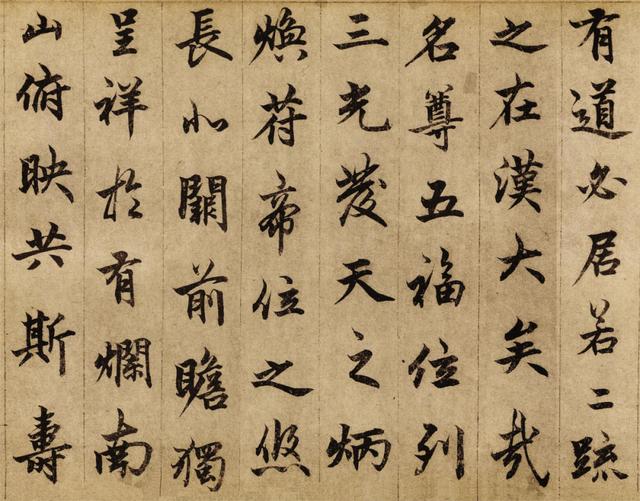 有道必居若二䟽
之在漢大矣哉
名尊五福位列
三光發天之炳
煥符帝位之悠
長北闕前瞻獨
呈祥於有爛南
山俯映共斯壽